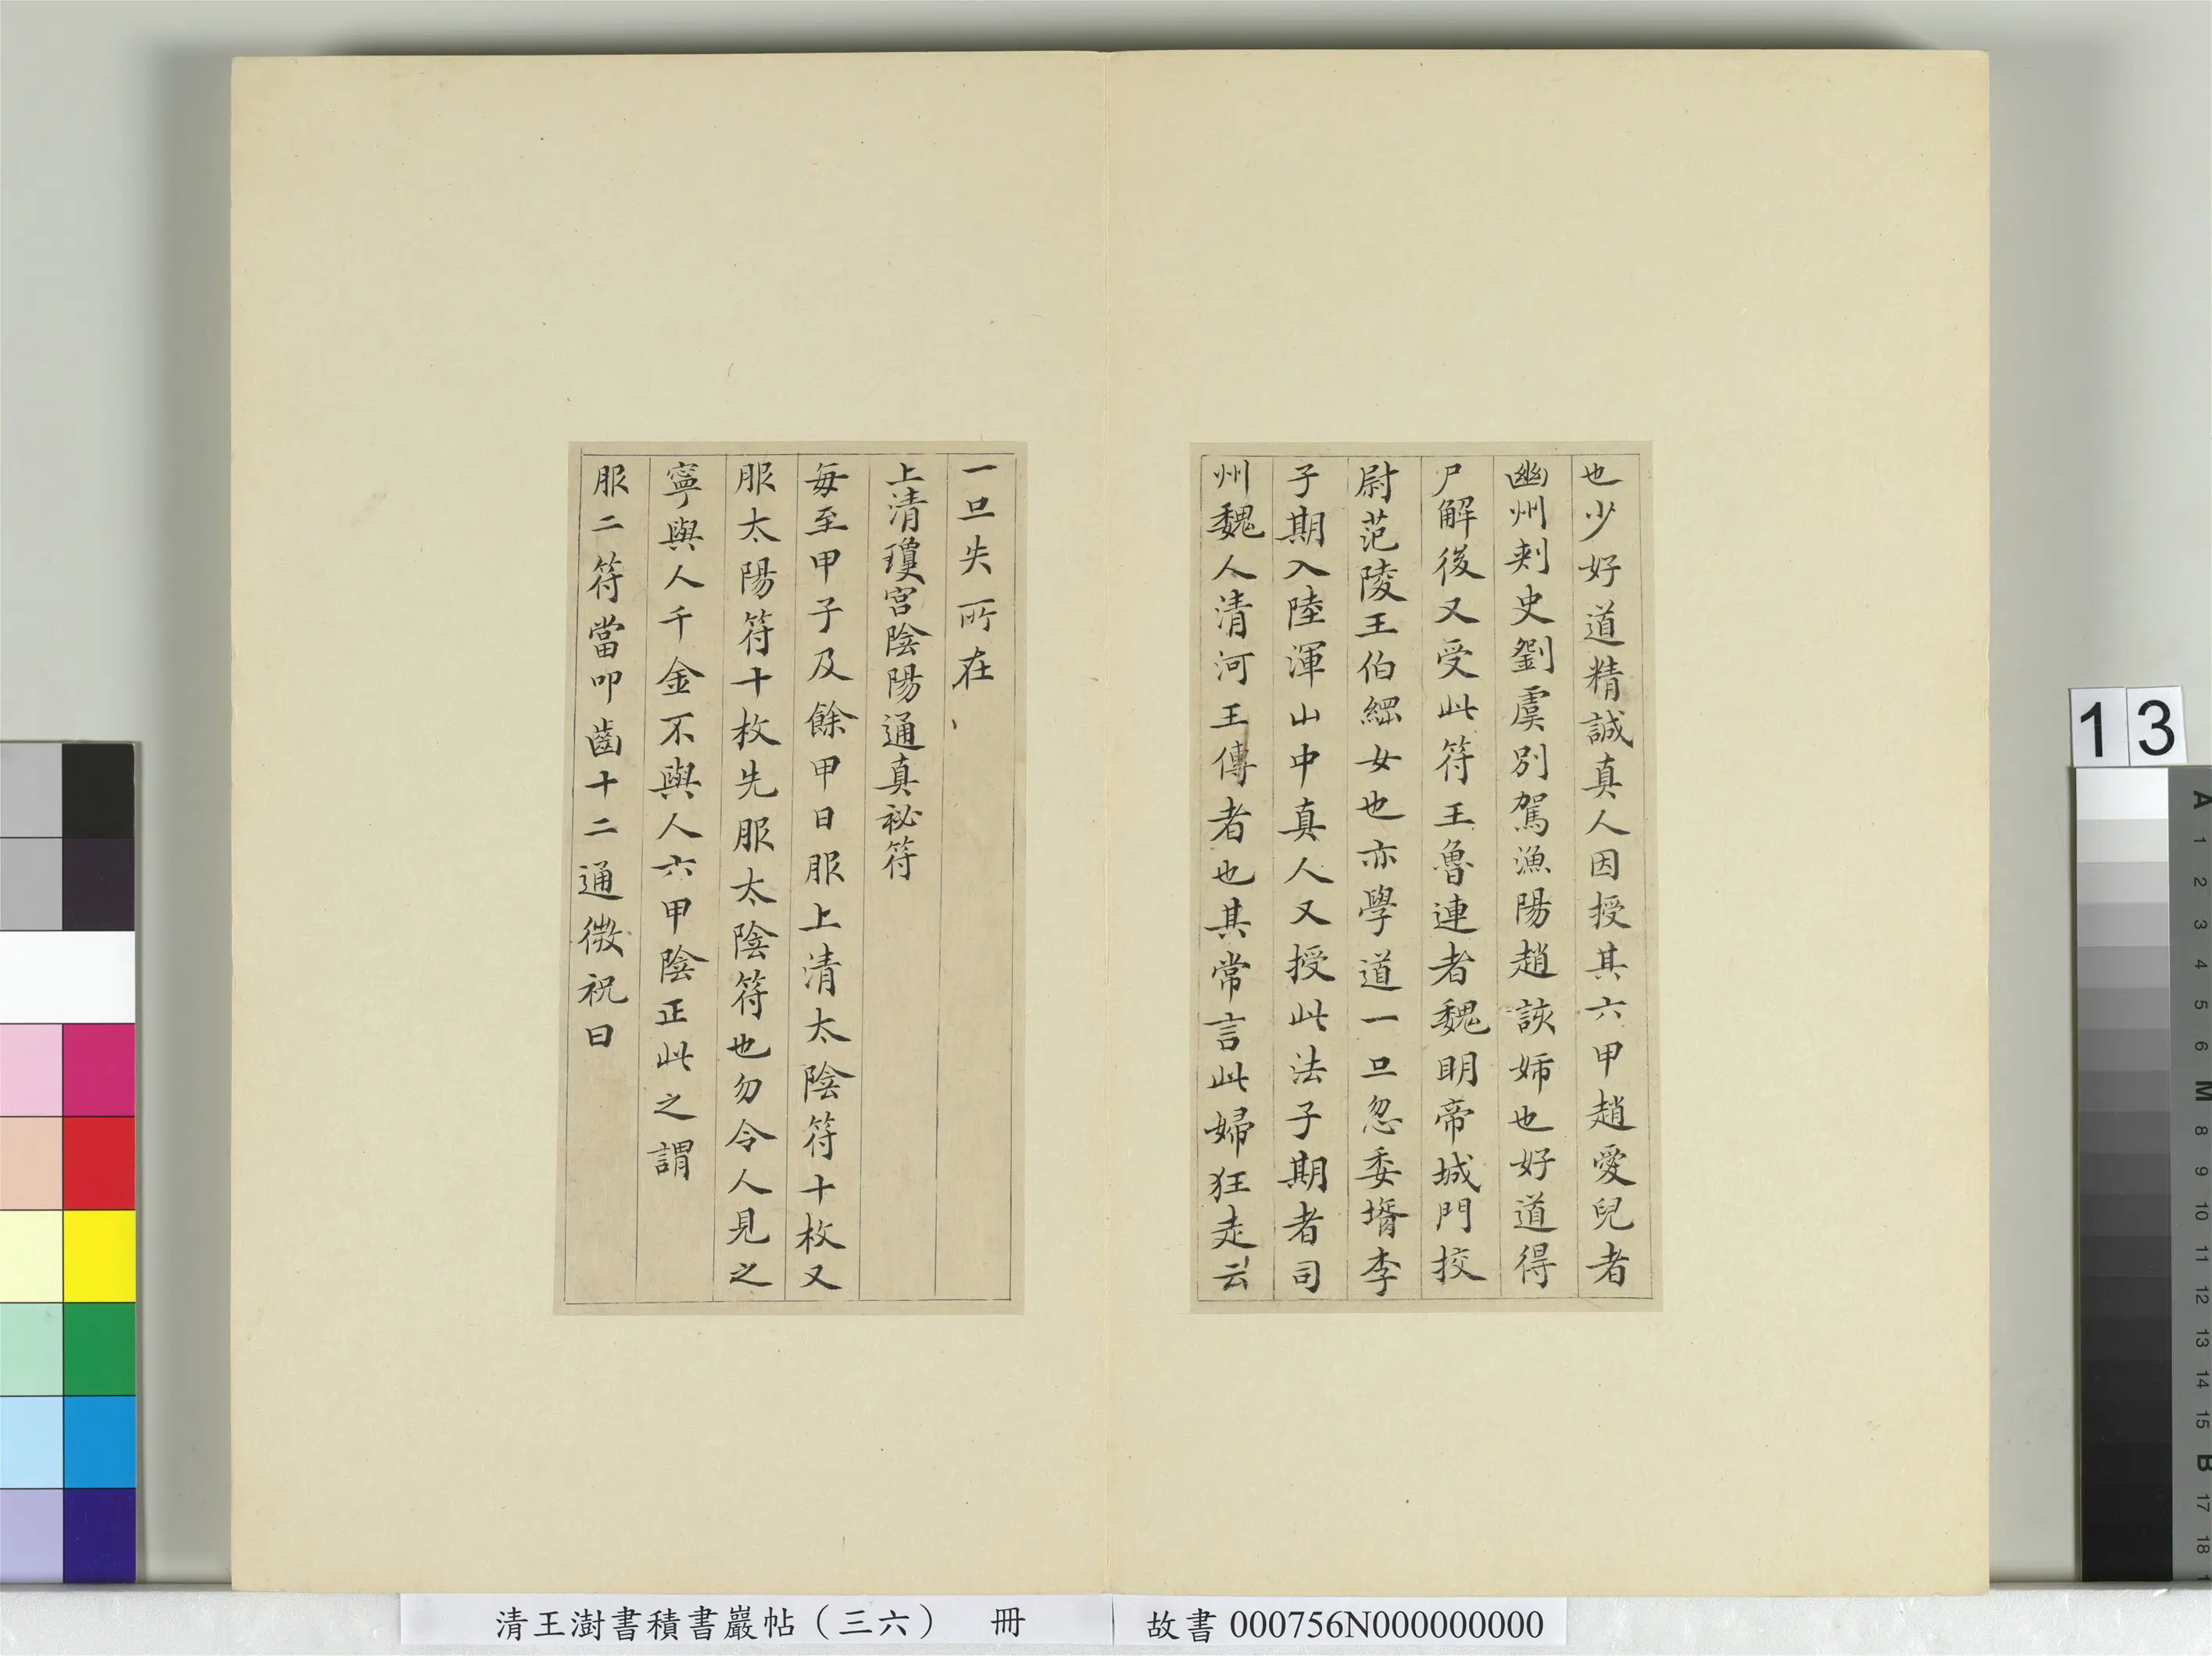 也少好道精誠真人因授其六甲趙愛兒者
幽州刾史劉虞別駕漁陽趙該姊也好道得
尸解後又受此符王魯連者魏明帝城門挍
尉范陵王伯綱女也亦學道一旦忽委壻李
子期入陸渾山中真人又授此法子期者司
州魏人清河王傳者也其常言此婦狂走云
一旦失所在
上清瓊宮陰陽通真祕符
每至甲子及餘甲日服上清太陰符十枚又
服太陽符十枚先服太陰符也勿令人見之
寧與人千金不與人六甲陰正此之謂
服二符當叩齒十二通微祝曰
清王澍書積書巖帖（三六） 冊
故書 000756N000000000
13
A 1 2 3 4 5 6 M 8 9 10 11 12 13 14 15 B 17 18